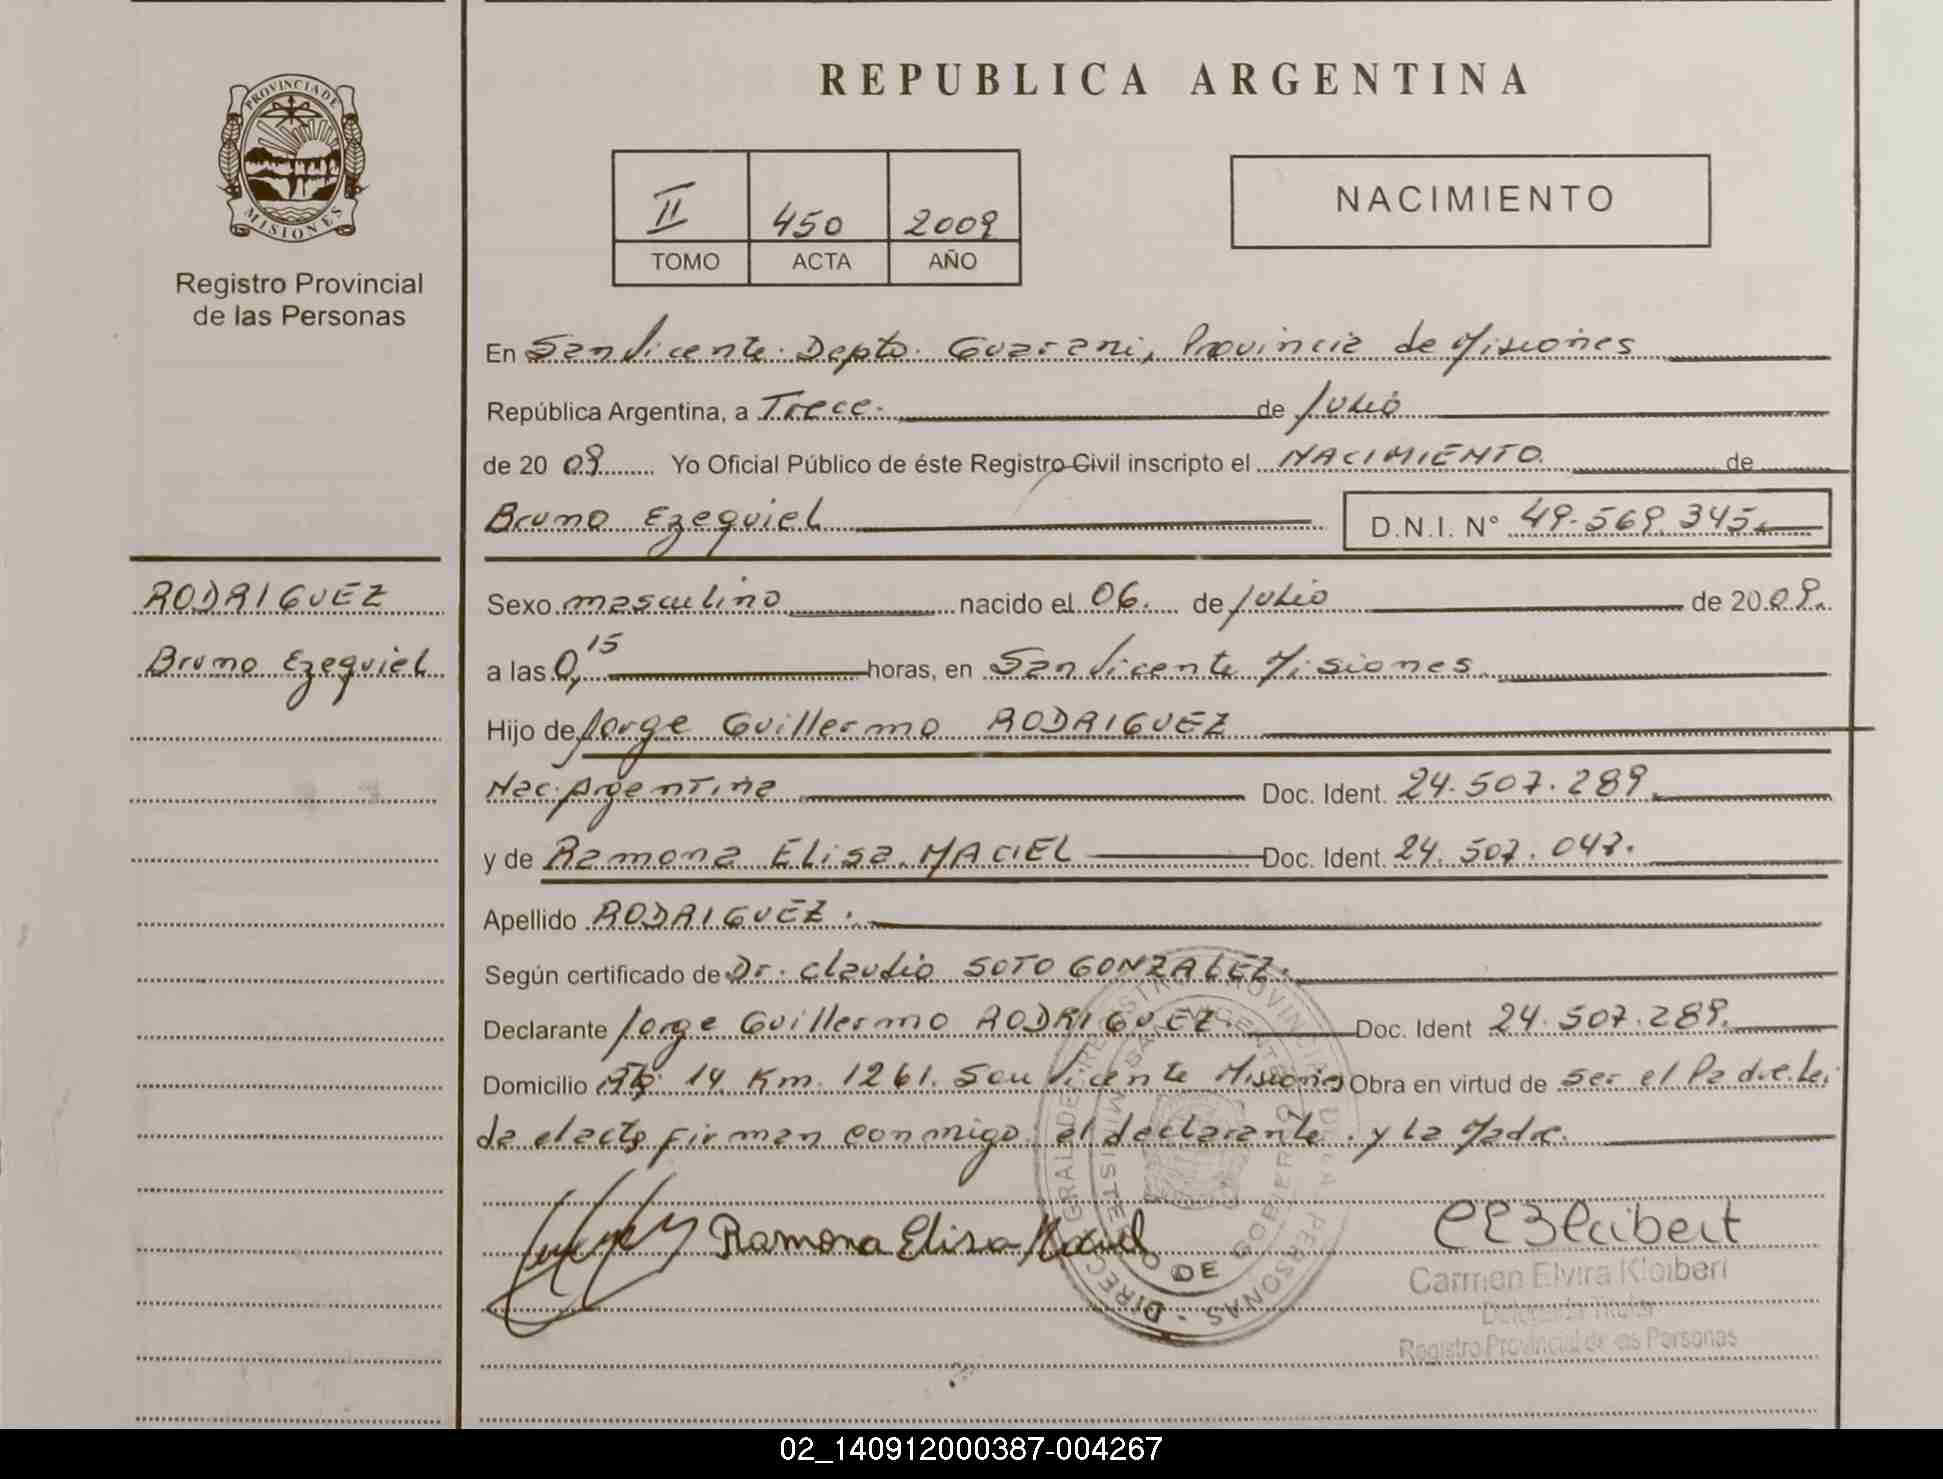 PROVINCIA DE
MISIONES
Registro Provincial
de las Personas
REPUBLICA ARGENTINA
II 450 2009
TOMO ACTA AÑO
NACIMIENTO
En San Vicente. Depto. Guarani, Provincia de Misiones
República Argentina, a Trece. de Julio
de 20 09 Yo Oficial Público de éste Registro Civil inscripto el NACIMIENTO de
Bruno Ezequiel D.N.I. N° 49.569.345.
RODRIGUEZ
Bruno Ezequiel
Sexo masculino nacido el 06. de Julio de 20 09.
a las 0,15 horas, en San Vicente Misiones.
Hijo de Jorge Guillermo RODRIGUEZ
Nac. Argentina Doc. Ident. 24.507.289.
y de Ramona Elisa MACIEL Doc. Ident. 24.507.047.
Apellido RODRIGUEZ.
Según certificado de Dr. Claudio SOTO GONZALEZ.
Declarante Jorge Guillermo RODRIGUEZ. Doc. Ident 24.507.289.
Domicilio 14 Km. 1261. San Vicente Misiones Obra en virtud de ser el Padre. Lei
da el acta firman conmigo el declarante y la Madre.
Ramona Elisa Maciel
Carmen Elvira Kleibert
Delegada Titular
Registro Provincial de las Personas
02_140912000387-004267